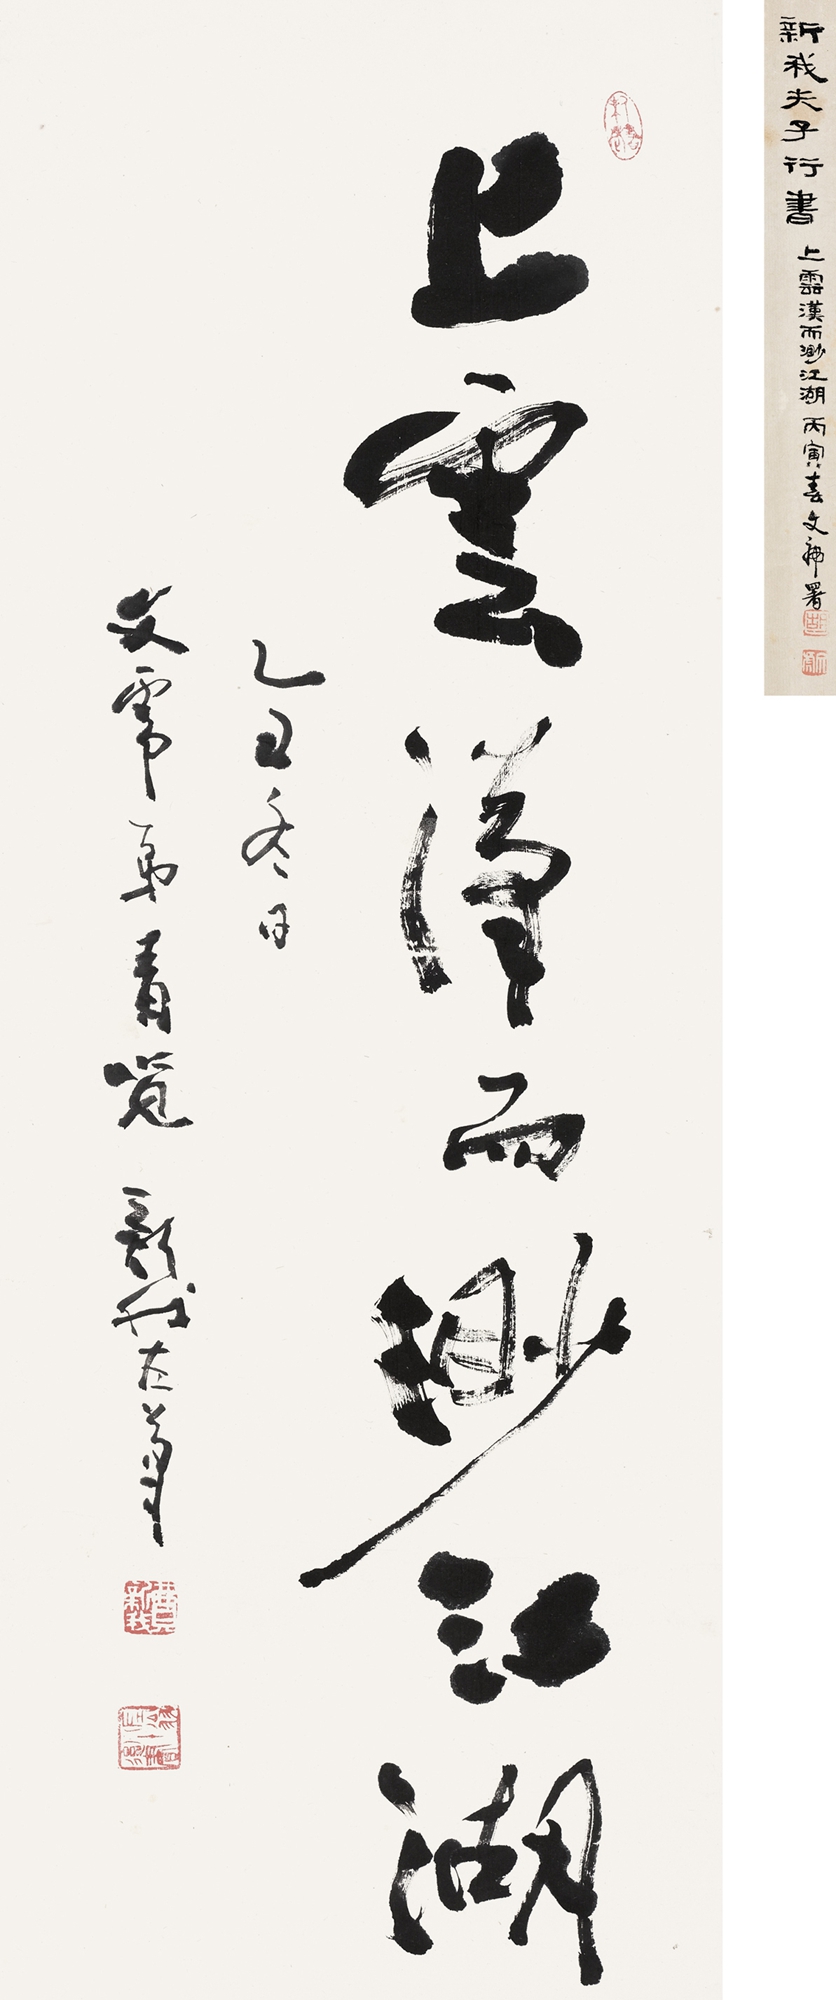 新我夫子行書
上雲漢而渺江湖 丙寅春文霈署
上雲漢而渺江湖
乙丑冬日
文霈弟青覽 新我左筆
費新我